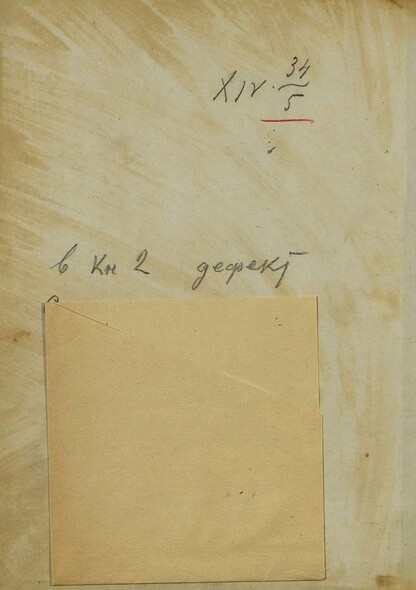 XIV. 34/5
в Кн 2 дефект